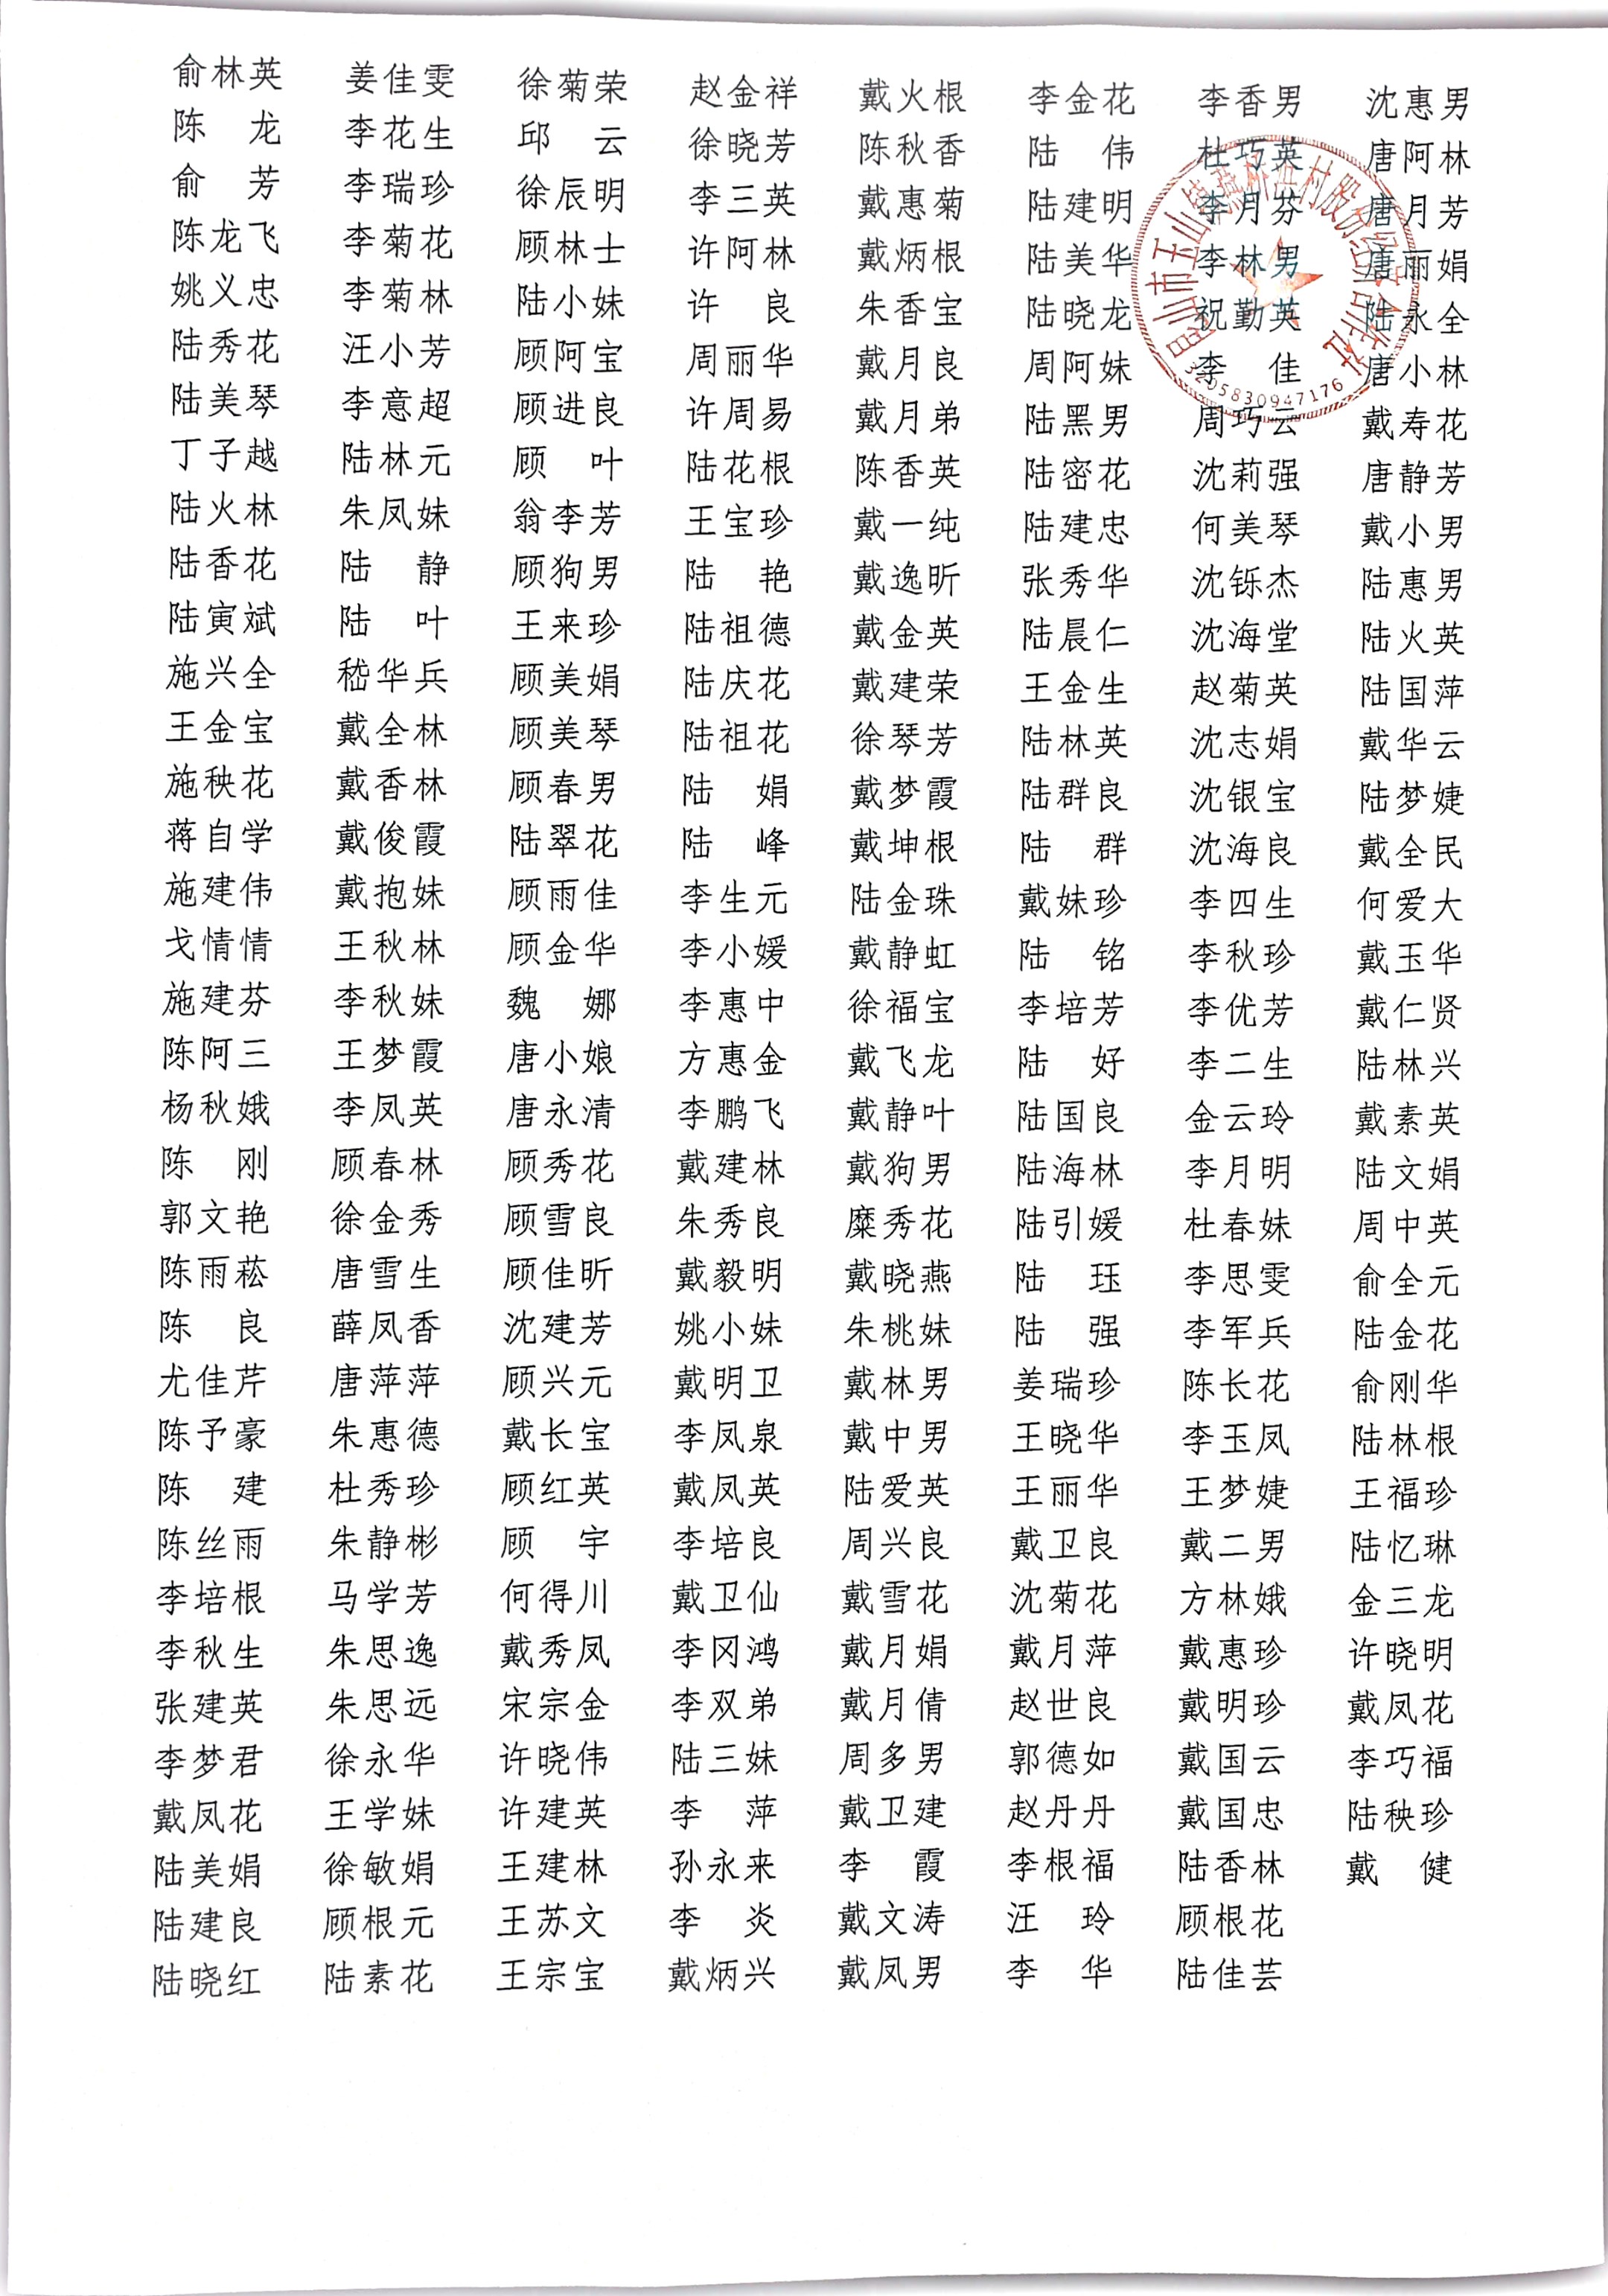 俞林英 姜佳雯 徐菊荣 赵金祥 戴火根 李金花 李香男 沈惠男
陈 龙 李花生 邱 云 徐晓芳 陈秋香 陆 伟 杜巧英 唐阿林
俞 芳 李瑞珍 徐辰明 李三英 戴惠菊 陆建明 李月芬 唐月芳
陈龙飞 李菊花 顾林士 许阿林 戴炳根 陆美华 李林男 唐丽娟
姚义忠 李菊林 陆小妹 许 良 朱香宝 陆晓龙 祝勤英 陆永全
陆秀花 汪小芳 顾阿宝 周丽华 戴月良 周阿妹 李 佳 唐小林
陆美琴 李意超 顾进良 许周易 戴月弟 陆黑男 周巧云 戴寿花
丁子越 陆林元 顾 叶 陆花根 陈香英 陆密花 沈莉强 唐静芳
陆火林 朱凤妹 翁李芳 王宝珍 戴一纯 陆建忠 何美琴 戴小男
陆香花 陆 静 顾狗男 陆 艳 戴逸昕 张秀华 沈铄杰 陆惠男
陆寅斌 陆 叶 王来珍 陆祖德 戴金英 陆晨仁 沈海堂 陆火英
施兴全 嵇华兵 顾美娟 陆庆花 戴建荣 王金生 赵菊英 陆国萍
王金宝 戴全林 顾美琴 陆祖花 徐琴芳 陆林英 沈志娟 戴华云
施秧花 戴香林 顾春男 陆 娟 戴梦霞 陆群良 沈银宝 陆梦婕
蒋自学 戴俊霞 陆翠花 陆 峰 戴坤根 陆 群 沈海良 戴全民
施建伟 戴抱妹 顾雨佳 李生元 陆金珠 戴妹珍 李四生 何爱大
戈情情 王秋林 顾金华 李小媛 戴静虹 陆 铭 李秋珍 戴玉华
施建芬 李秋妹 魏 娜 李惠中 徐福宝 李培芳 李优芳 戴仁贤
陈阿三 王梦霞 唐小娘 方惠金 戴飞龙 陆 好 李二生 陆林兴
杨秋娥 李凤英 唐永清 李鹏飞 戴静叶 陆国良 金云玲 戴素英
陈 刚 顾春林 顾秀花 戴建林 戴狗男 陆海林 李月明 陆文娟
郭文艳 徐金秀 顾雪良 朱秀良 糜秀花 陆引媛 杜春妹 周中英
陈雨菘 唐雪生 顾佳昕 戴毅明 戴晓燕 陆 珏 李思雯 俞全元
陈 良 薛凤香 沈建芳 姚小妹 朱桃妹 陆 强 李军兵 陆金花
尤佳芹 唐萍萍 顾兴元 戴明卫 戴林男 姜瑞珍 陈长花 俞刚华
陈予豪 朱惠德 戴长宝 李凤泉 戴中男 王晓华 李玉凤 陆林根
陈 建 杜秀珍 顾红英 戴凤英 陆爱英 王丽华 王梦婕 王福珍
陈丝雨 朱静彬 顾 宇 李培良 周兴良 戴卫良 戴二男 陆忆琳
李培根 马学芳 何得川 戴卫仙 戴雪花 沈菊花 方林娥 金三龙
李秋生 朱思逸 戴秀凤 李冈鸿 戴月娟 戴月萍 戴惠珍 许晓明
张建英 朱思远 宋宗金 李双弟 戴月倩 赵世良 戴明珍 戴凤花
李梦君 徐永华 许晓伟 陆三妹 周多男 郭德如 戴国云 李巧福
戴凤花 王学妹 许建英 李 萍 戴卫建 赵丹丹 戴国忠 陆秧珍
陆美娟 徐敏娟 王建林 孙永来 李 霞 李根福 陆香林 戴 健
陆建良 顾根元 王苏文 李 炎 戴文涛 汪 玲 顾根花
陆晓红 陆素花 王宗宝 戴炳兴 戴凤男 李 华 陆佳芸
3205830947176